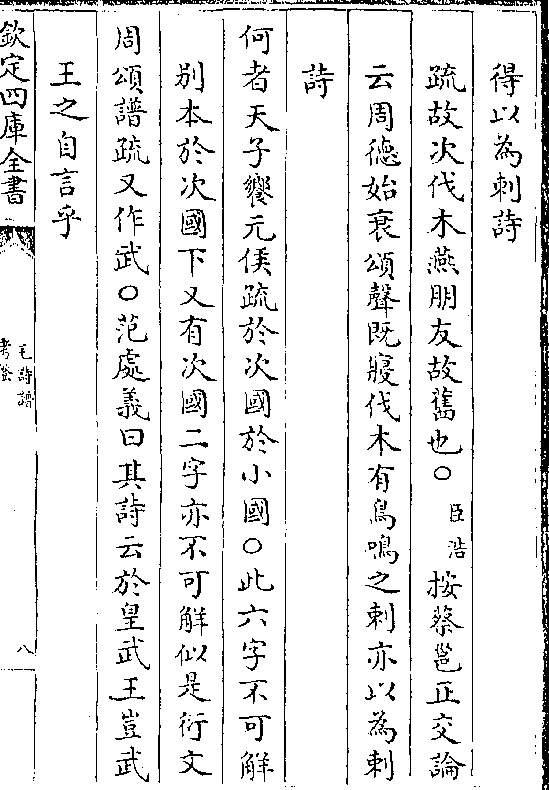 得以為刺詩
疏故次伐木燕朋友故舊也○臣浩按蔡邕正交論
云周德始衰頌聲既寢伐木有鳥鳴之刺亦以為刺
詩
何者天子饗元侯疏於次國於小國○此六字不可解
別本於次國下又有次國二字亦不可解似是衍文
周頌譜疏又作武○范處義曰其詩云於皇武王豈武
王之自言乎
欽定四庫全書
毛詩譜
考證
八